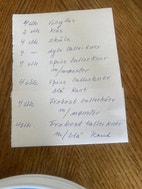 4 stk
2 stk
4 stk skåle
4 — dybe tallerkner
4 stk spise tallerkner
m/mønster
4 stk spise tallerkner
blå kant
4 stk Frokost tallerkner
m/mønster
4 stk Frokost tallerkner
m/blå kant